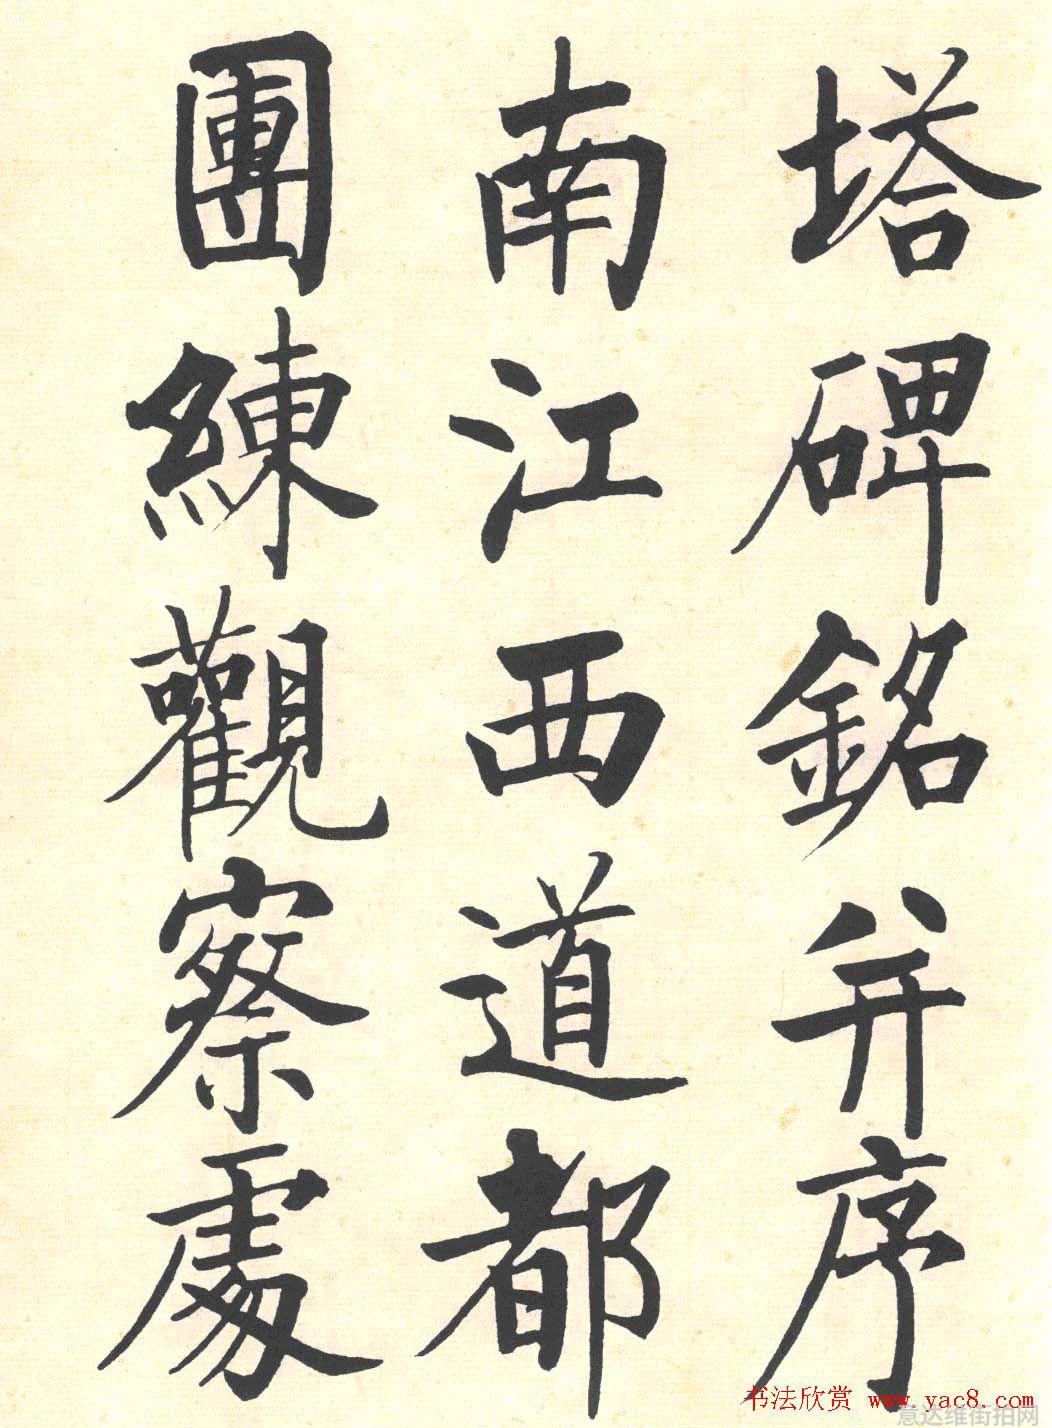 塔碑銘并序
南江西道都
團練觀察處
书法欣赏 www.yac8.com
意达维街拍网